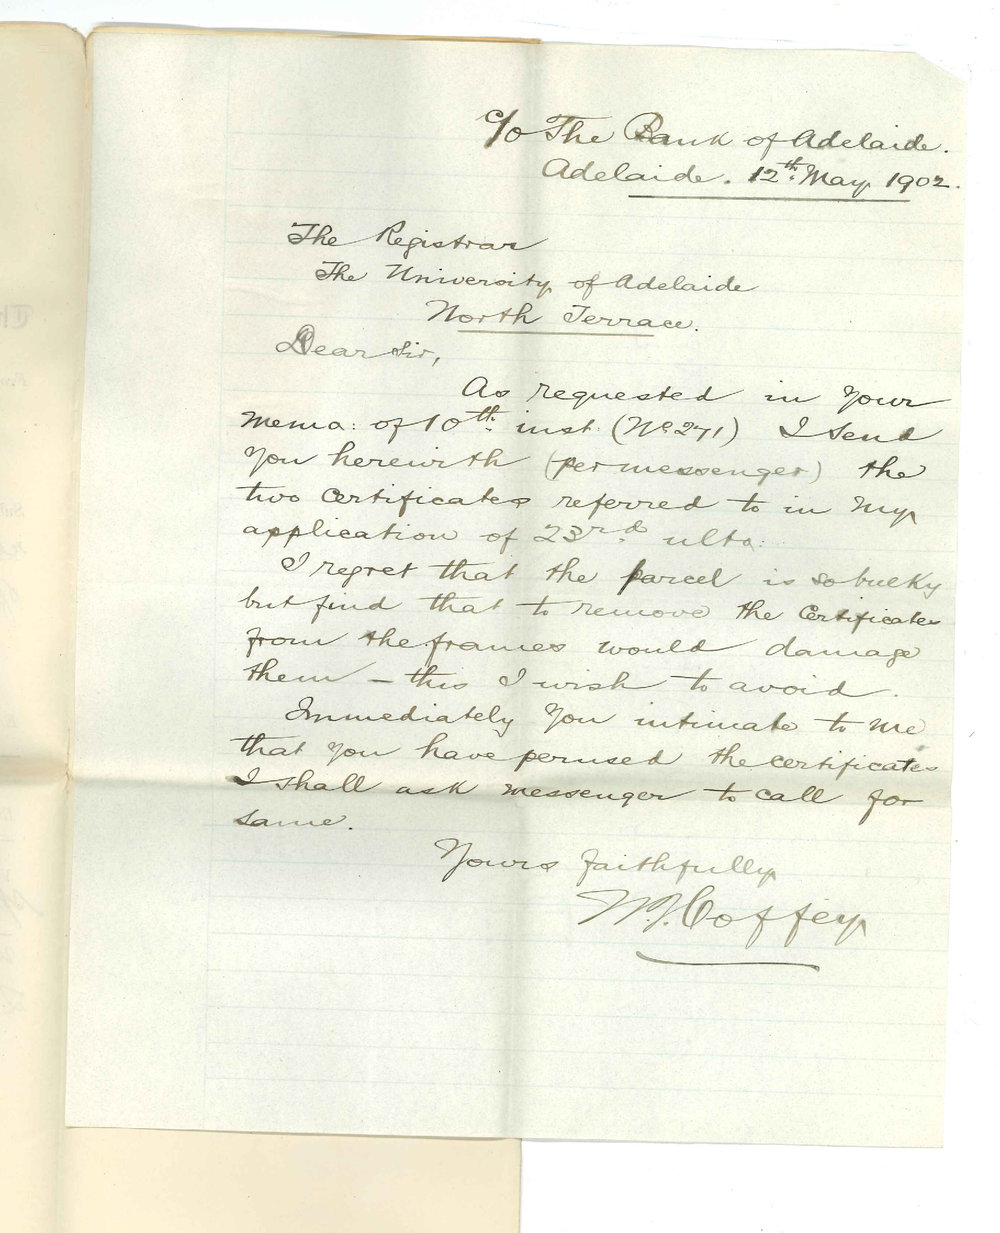 c/o The Bank of Adelaide.
Adelaide. 12th. May 1902.
The Registrar
The University of Adelaide
North Terrace.
Dear Sir,
As requested in your
memo: of 10th. inst: (No. 271) I send
you herewith (per messenger) the
two certificates referred to in my
application of 23rd. ulto:
I regret that the parcel is so bulky
but find that to remove the certificates
from the frames would damage
them – this I wish to avoid.
Immediately you intimate to me
that you have perused the certificates
I shall ask messenger to call for
same.
Yours faithfully
W. J. Coffey